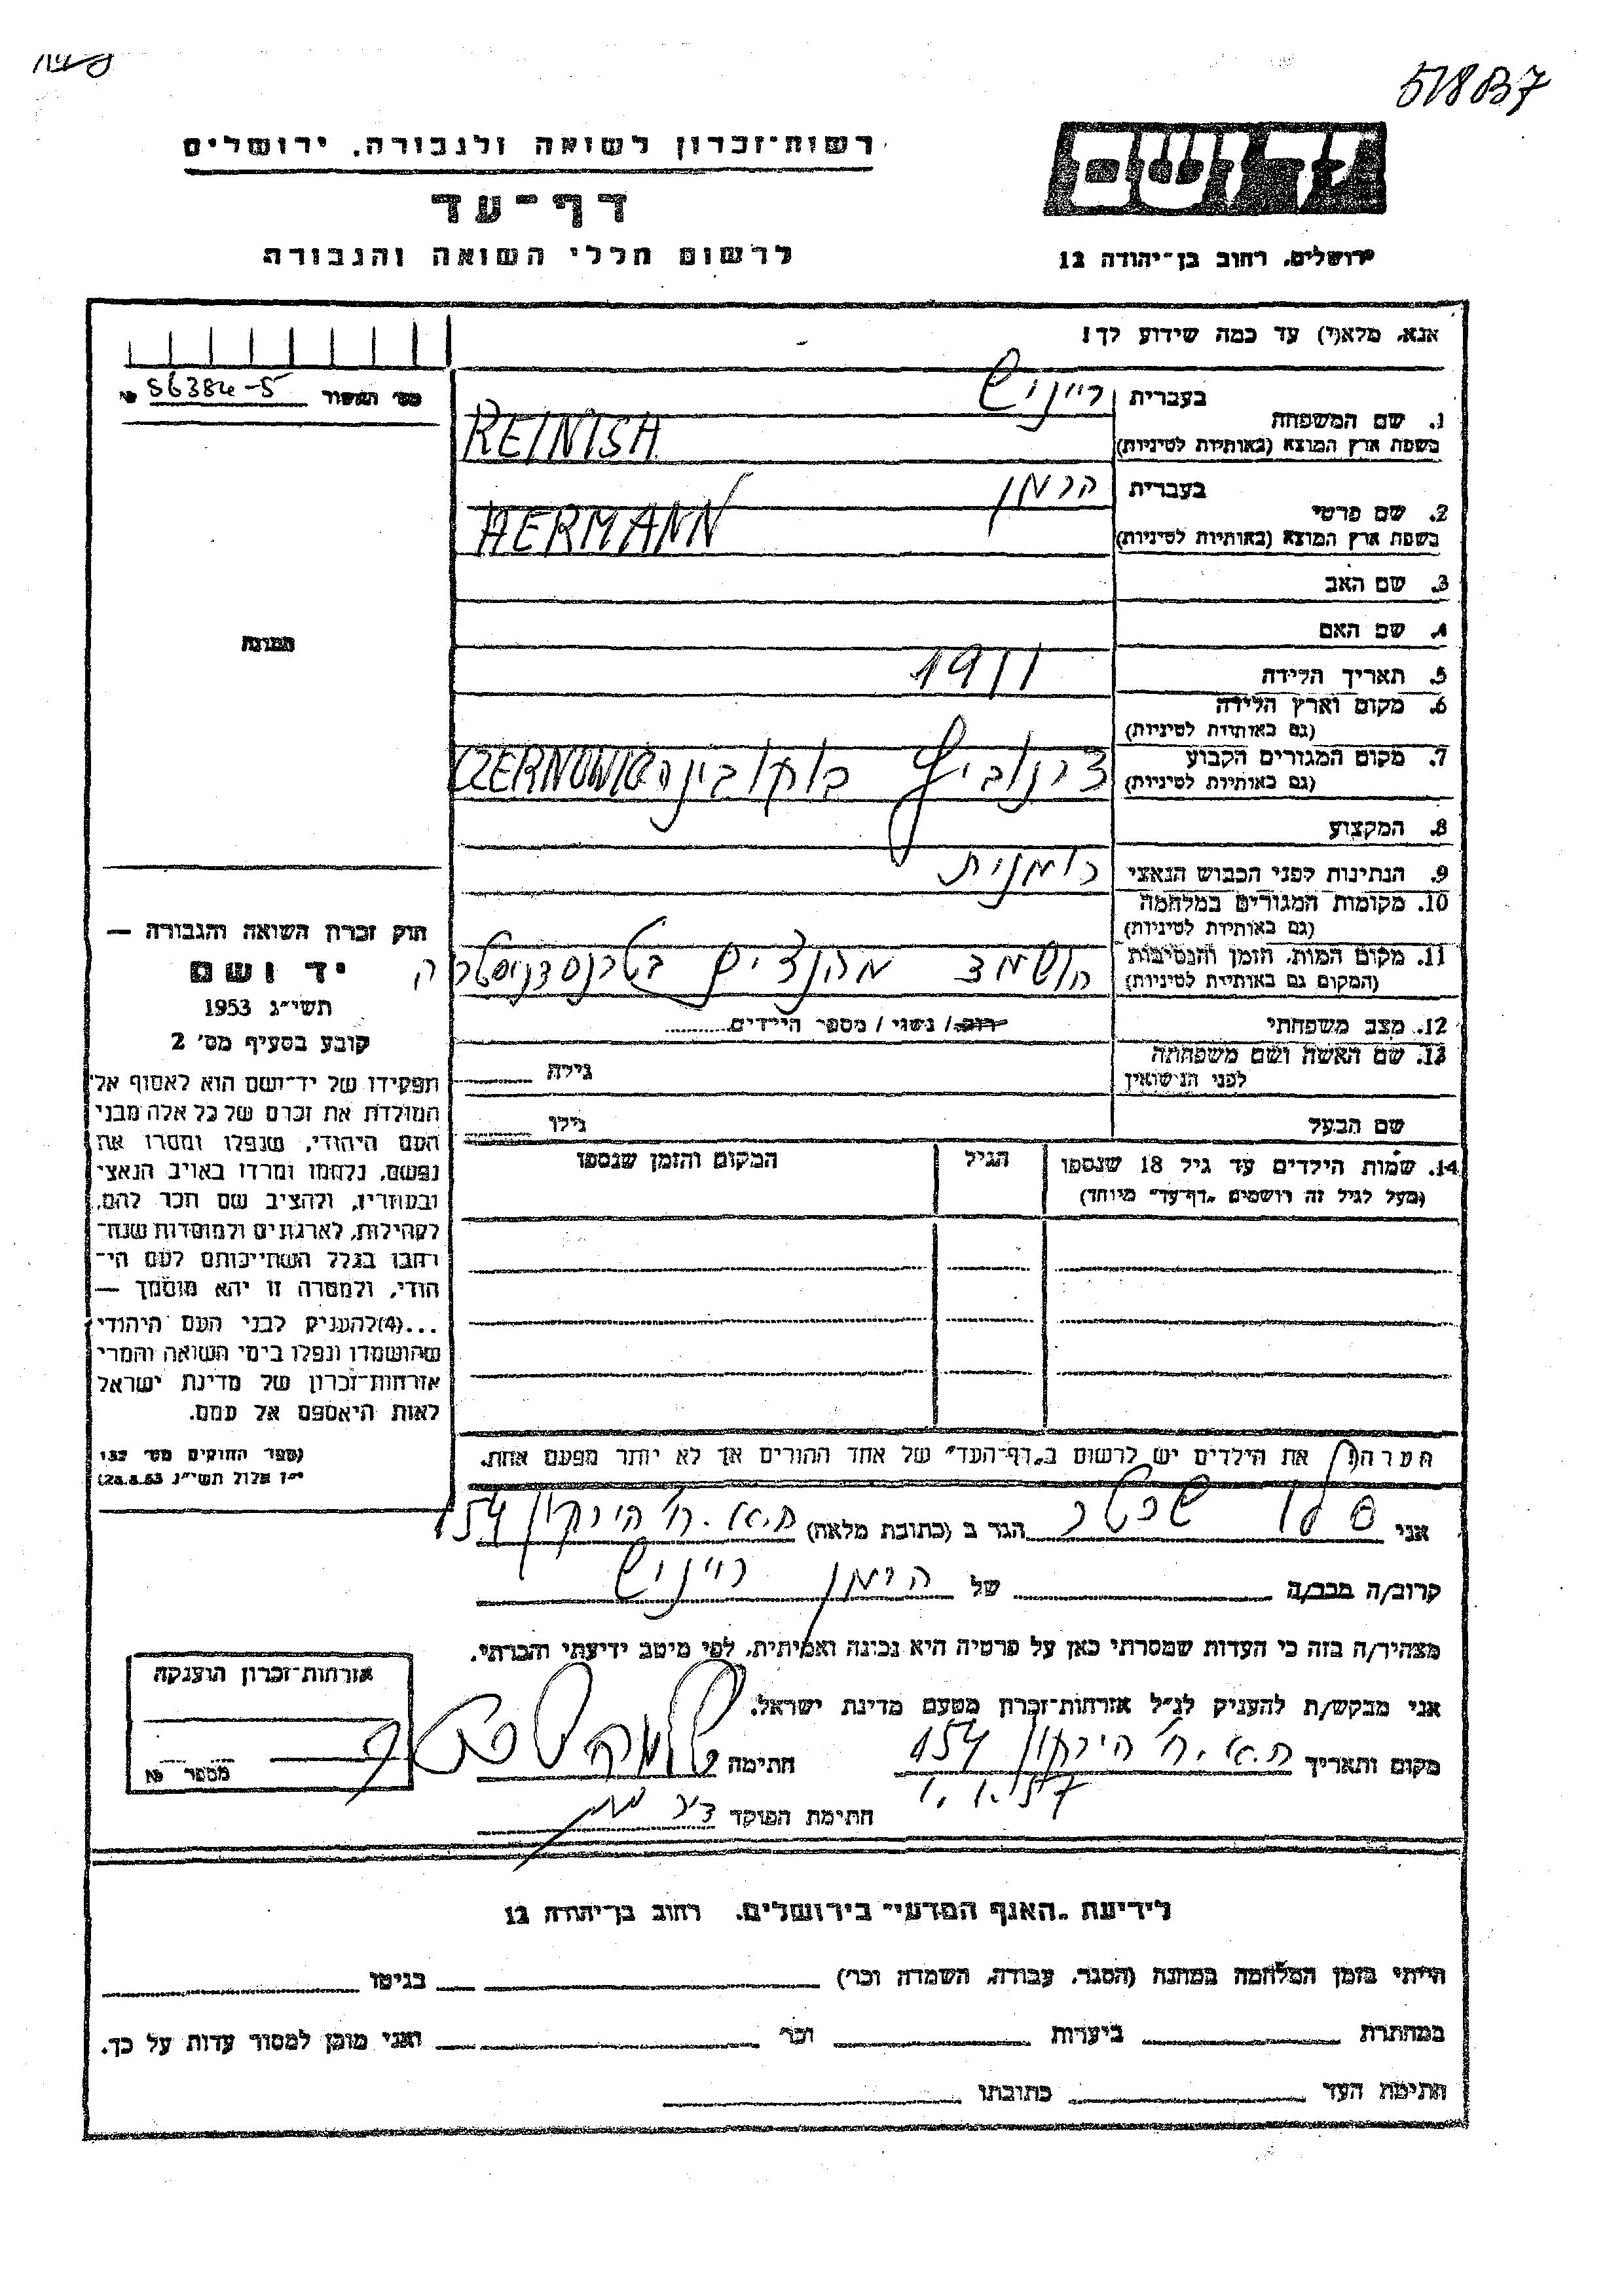 518B7
רשות-זכרון לשואה ולגבורה, ירושלים
דף-עד
לרשום חללי השואה והגבורה
יד ושם
ירושלים, רחוב בן-יהודה 12
אנא, מלא(י) עד כמה שידוע לך!
מס' האשור № 56384-5
1. שם המשפחה בעברית ריינויש
בשפת ארץ המוצא (באותיות לטיניות) REINISH
2. שם פרטי בעברית הרמן
בשפת ארץ המוצא (באותיות לטיניות) HERMANN
3. שם האב
4. שם האם
5. תאריך הלידה 1911
6. מקום וארץ הלידה
(גם באותיות לטיניות)
7. מקום המגורים הקבוע צרנוביץ בוקובינה CZERNOWIC
(גם באותיות לטיניות)
8. המקצוע
9. הנתינות לפני הכבוש הנאצי רומנית
10. מקומות המגורים במלחמה
(גם באותיות לטיניות)
11. מקום המות, הזמן והנסיבות הושמד מהנצים בטרנסדניסטריה
(המקום גם באותיות לטיניות)
12. מצב משפחתי רווק / נשוי / מספר הילדים
13. שם האשה ושם משפחתה גילה
לפני הנישואין
שם הבעל גילו
14. שמות הילדים עד גיל 18 שנספו הגיל המקום והזמן שנספו
(מעל לגיל זה רושמים "דף-עד" מיוחד)
הערה: את הילדים יש לרשום ב"דף-העד" של אחד ההורים אך לא יותר מפעם אחת.
תמונה
חוק זכרון השואה והגבורה —
יד ושם
תשי"ג 1953
קובע בסעיף מס' 2
תפקידו של יד-ושם הוא לאסוף אל
המולדת את זכרם של כל אלה מבני
העם היהודי, שנפלו ומסרו את
נפשם, נלחמו ומרדו באויב הנאצי
ובעוזריו, ולהציב שם וזכר להם,
לקהילות, לארגונים ולמוסדות שנח-
רבו בגלל השתייכותם לעם הי-
הודי, ולמטרה זו יהא מוסמך —
...(4) להעניק לבני העם היהודי
שהושמדו ונפלו בימי השואה והמרי
אזרחות-זכרון של מדינת ישראל
לאות היאספם אל עמם.
(ספר החוקים מס' 132
י"ז אלול תשי"ג 28.8.53)
אני שכטר הגר ב (כתובת מלאה) ת.א. רח' הירקון 154
קרוב/ה מכר/ה של הרמן ריינויש
מצהיר/ה בזה כי העדות שמסרתי כאן על פרטיה היא נכונה ואמיתית, לפי מיטב ידיעתי והכרתי.
אני מבקש/ת להעניק לנ"ל אזרחות-זכרון מטעם מדינת ישראל.
מקום ותאריך ת.א. רח' הירקון 154 חתימה
1.1.57
חתימת הפוקד
אזרחות-זכרון הוענקה
מספר №
לידיעת "האגף המדעי" בירושלים, רחוב בן-יהודה 12
הייתי בזמן המלחמה במחנה (הסגר, עבודה, השמדה וכו') בגיטו
במחתרת ביערות וכו' ואני מוכן למסור עדות על כך.
חתימת העד כתובתו